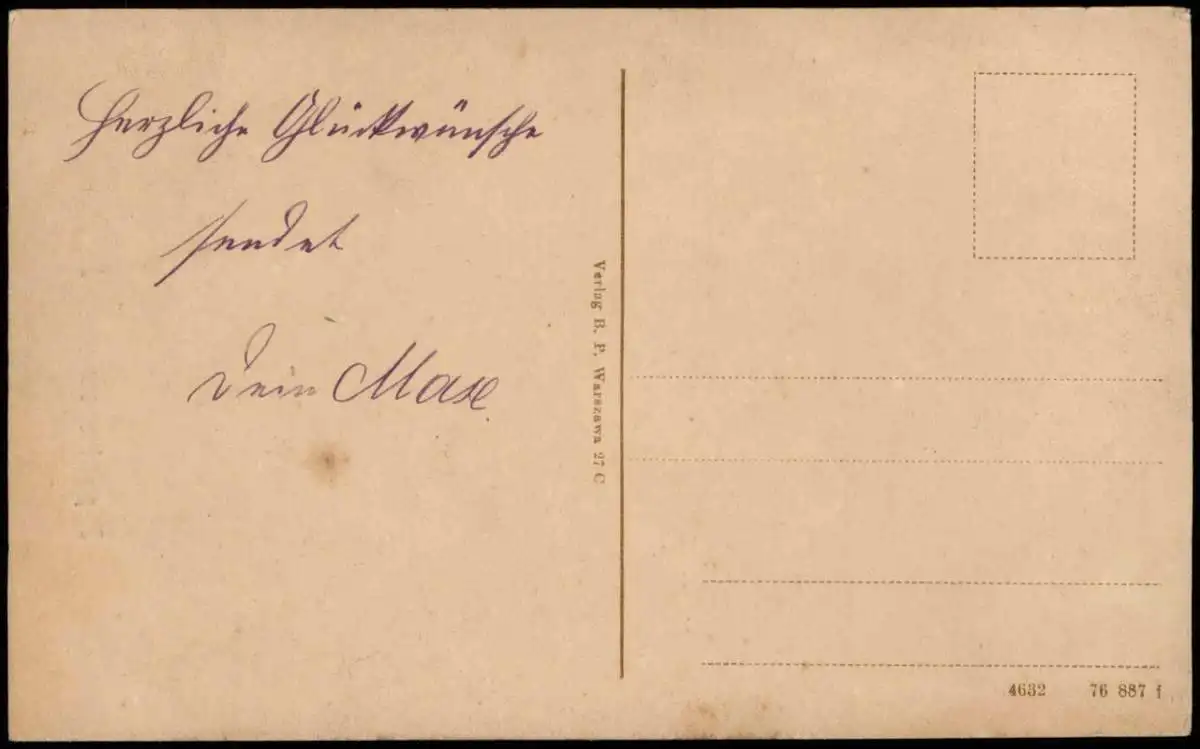 Herzliche Glückwünsche
sendet
Dein Max.
Verlag B. P. Warszawa 27 C
4632 76 887 f